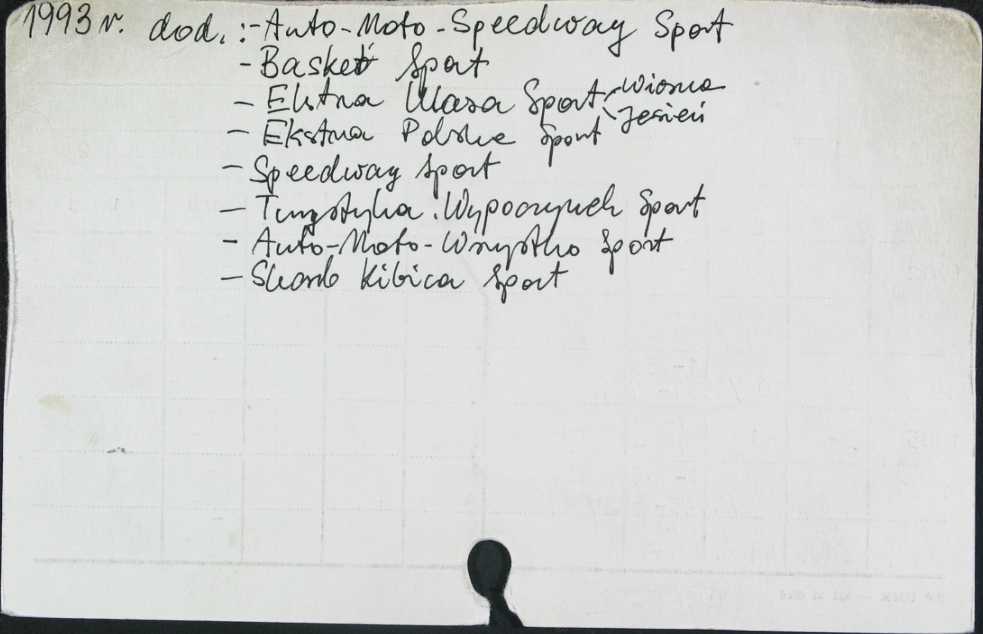 1993 r. dod. :- Auto-Moto-Speedway Sport
- Basket Sport
- Ekstra Klasa Sport wiosna
jesień
- Ekstra Polska Sport
- Speedway Sport
- Turystyka. Wypoczynek Sport
- Auto-Moto-Wszystko Sport
- Skarb Kibica Sport